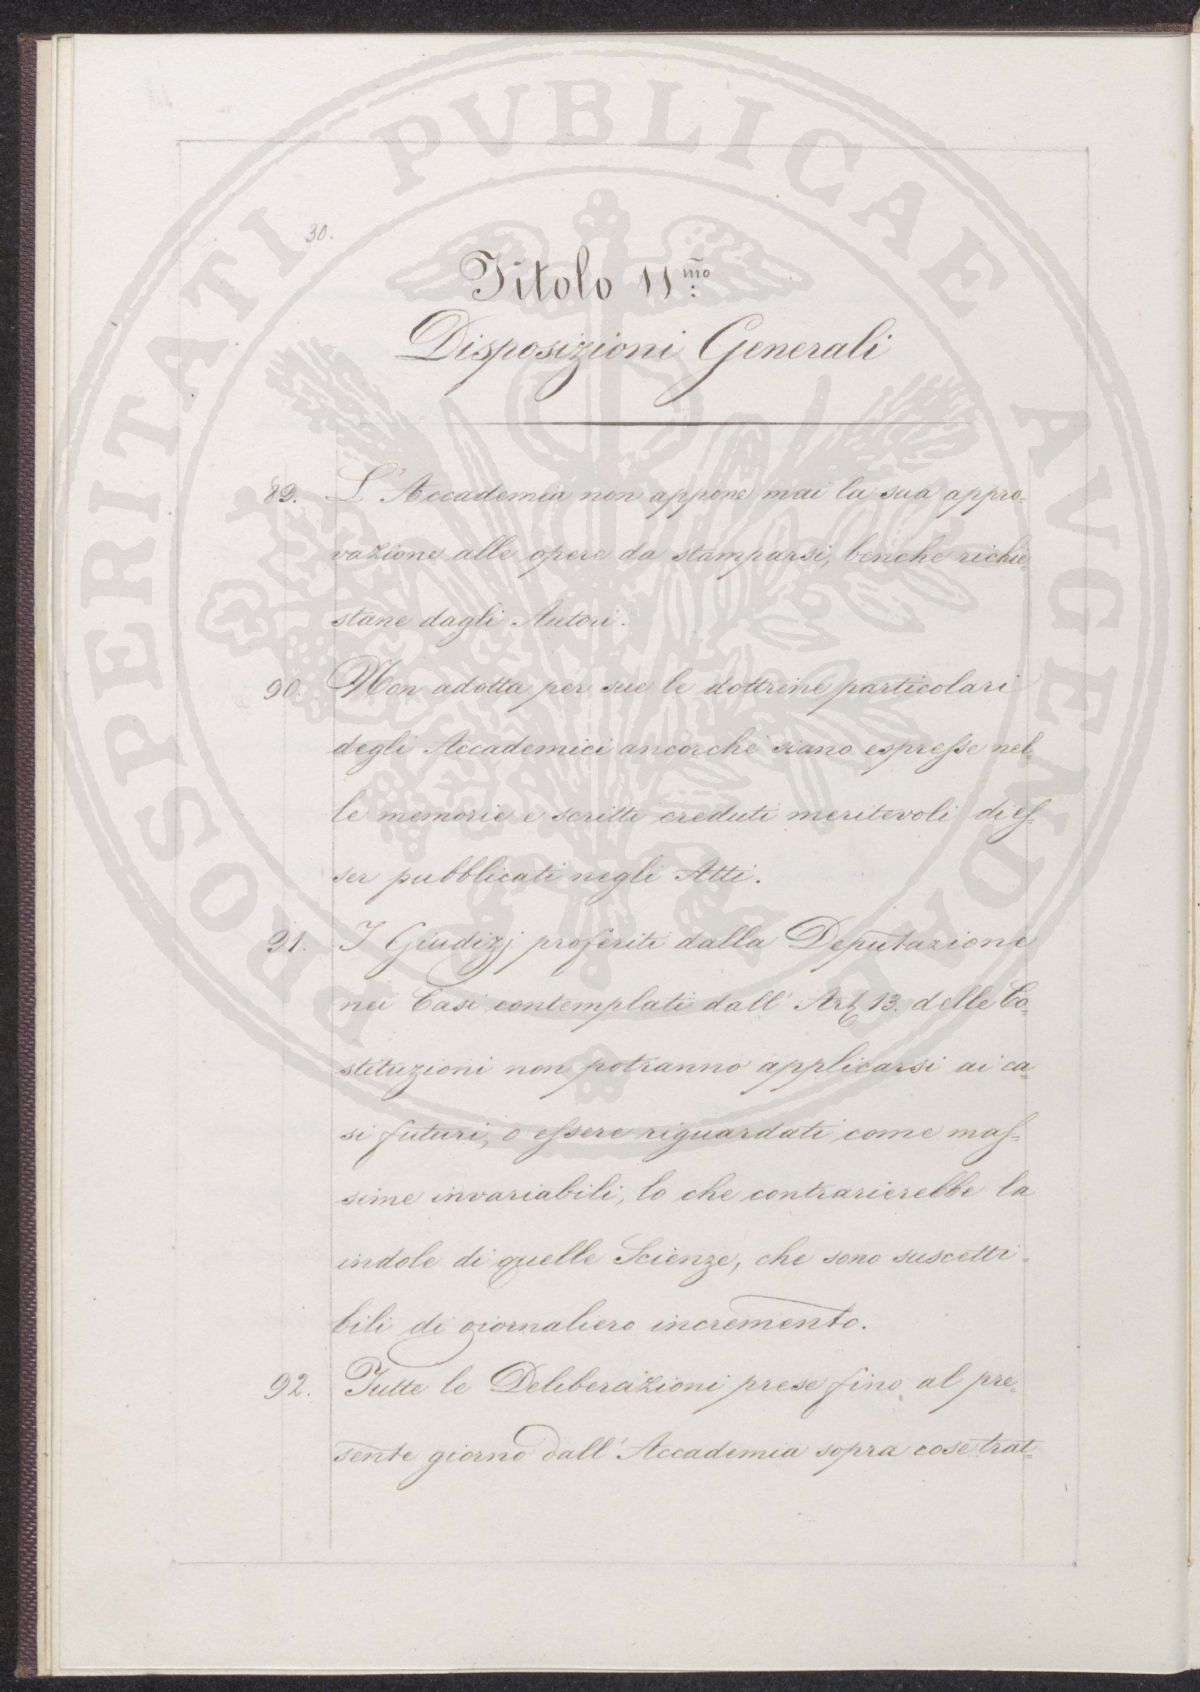 30.
Titolo 11.mo
Disposizioni Generali
89. L'Accademia non appone mai la sua appro=
vazione alle opere da stamparsi, benche richie=
stane dagli Autori.
90. Non adotta per sue le dottrine particolari
degli Accademici ancorchè siano espresse nel=
le memorie e scritti creduti meritevoli di es=
ser pubblicati negli Atti.
91. I Giudizj proferiti dalla Deputazione
nei Casi contemplati dall'Art. 13. delle Co=
stituzioni non potranno applicarsi ai ca=
si futuri, o essere riguardati come mas=
sime invariabili, lo che contrarierebbe la
indole di quelle Scienze, che sono suscetti=
bili di giornaliero incremento.
92. Tutte le Deliberazioni prese fino al pre=
sente giorno dall'Accademia sopra cose trat=
PROSPERITATI PVBLICAE AVGENDAE